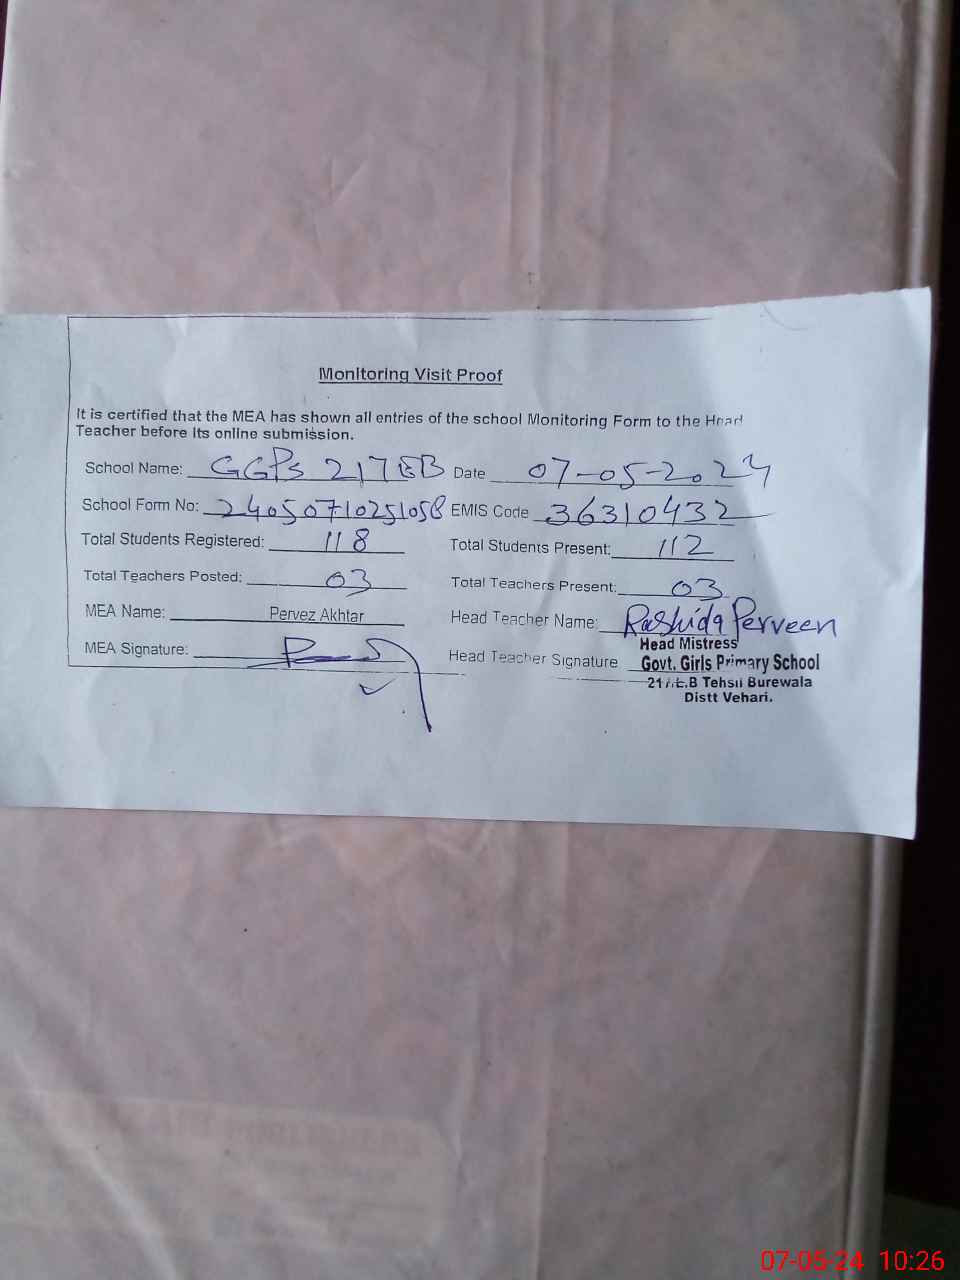 Monitoring Visit Proof
It is certified that the MEA has shown all entries of the school Monitoring Form to the Head
Teacher before its online submission.
School Name: GGPS 217 EB Date 07-05-2024
School Form No: 24050710251058 EMIS Code 36310432
Total Students Registered: 118 Total Students Present: 112
Total Teachers Posted: 03 Total Teachers Present: 03
MEA Name: Pervez Akhtar Head Teacher Name: Rashida Perveen
MEA Signature: Head Teacher Signature
Head Mistress
Govt. Girls Primary School
217/E.B Tehsil Burewala
Distt Vehari.
07-05-24 10:26